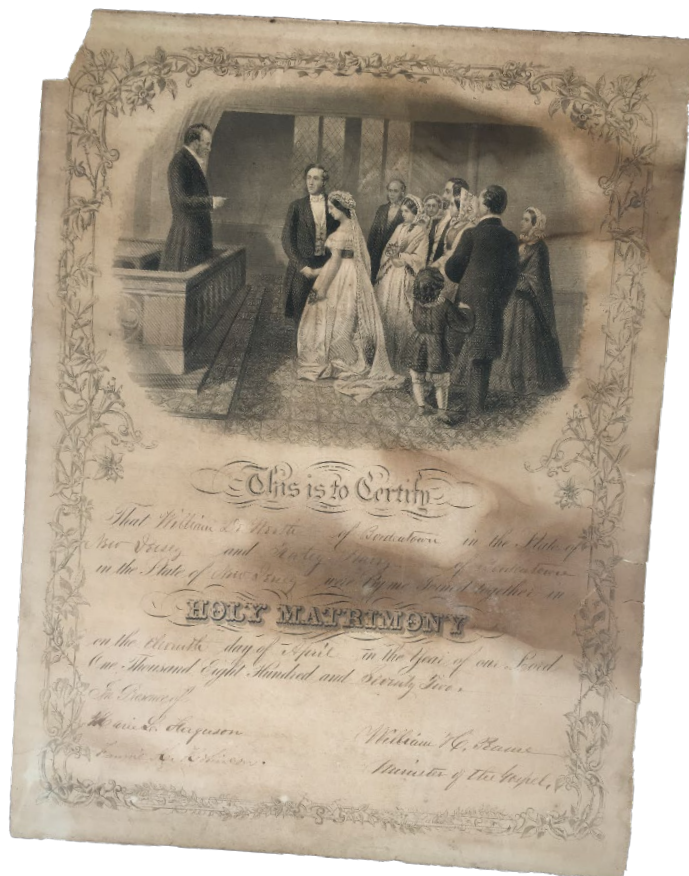 This is to Certify
That William of Bordentown in the State of
New Jersey and of Bordentown
in the State of New Jersey were by me joined together in
HOLY MATRIMONY
on the Eleventh day of April in the Year of our Lord
One Thousand Eight Hundred and Seventy Five.
In Presence of
Ferguson
William H.
Minister of the Gospel,